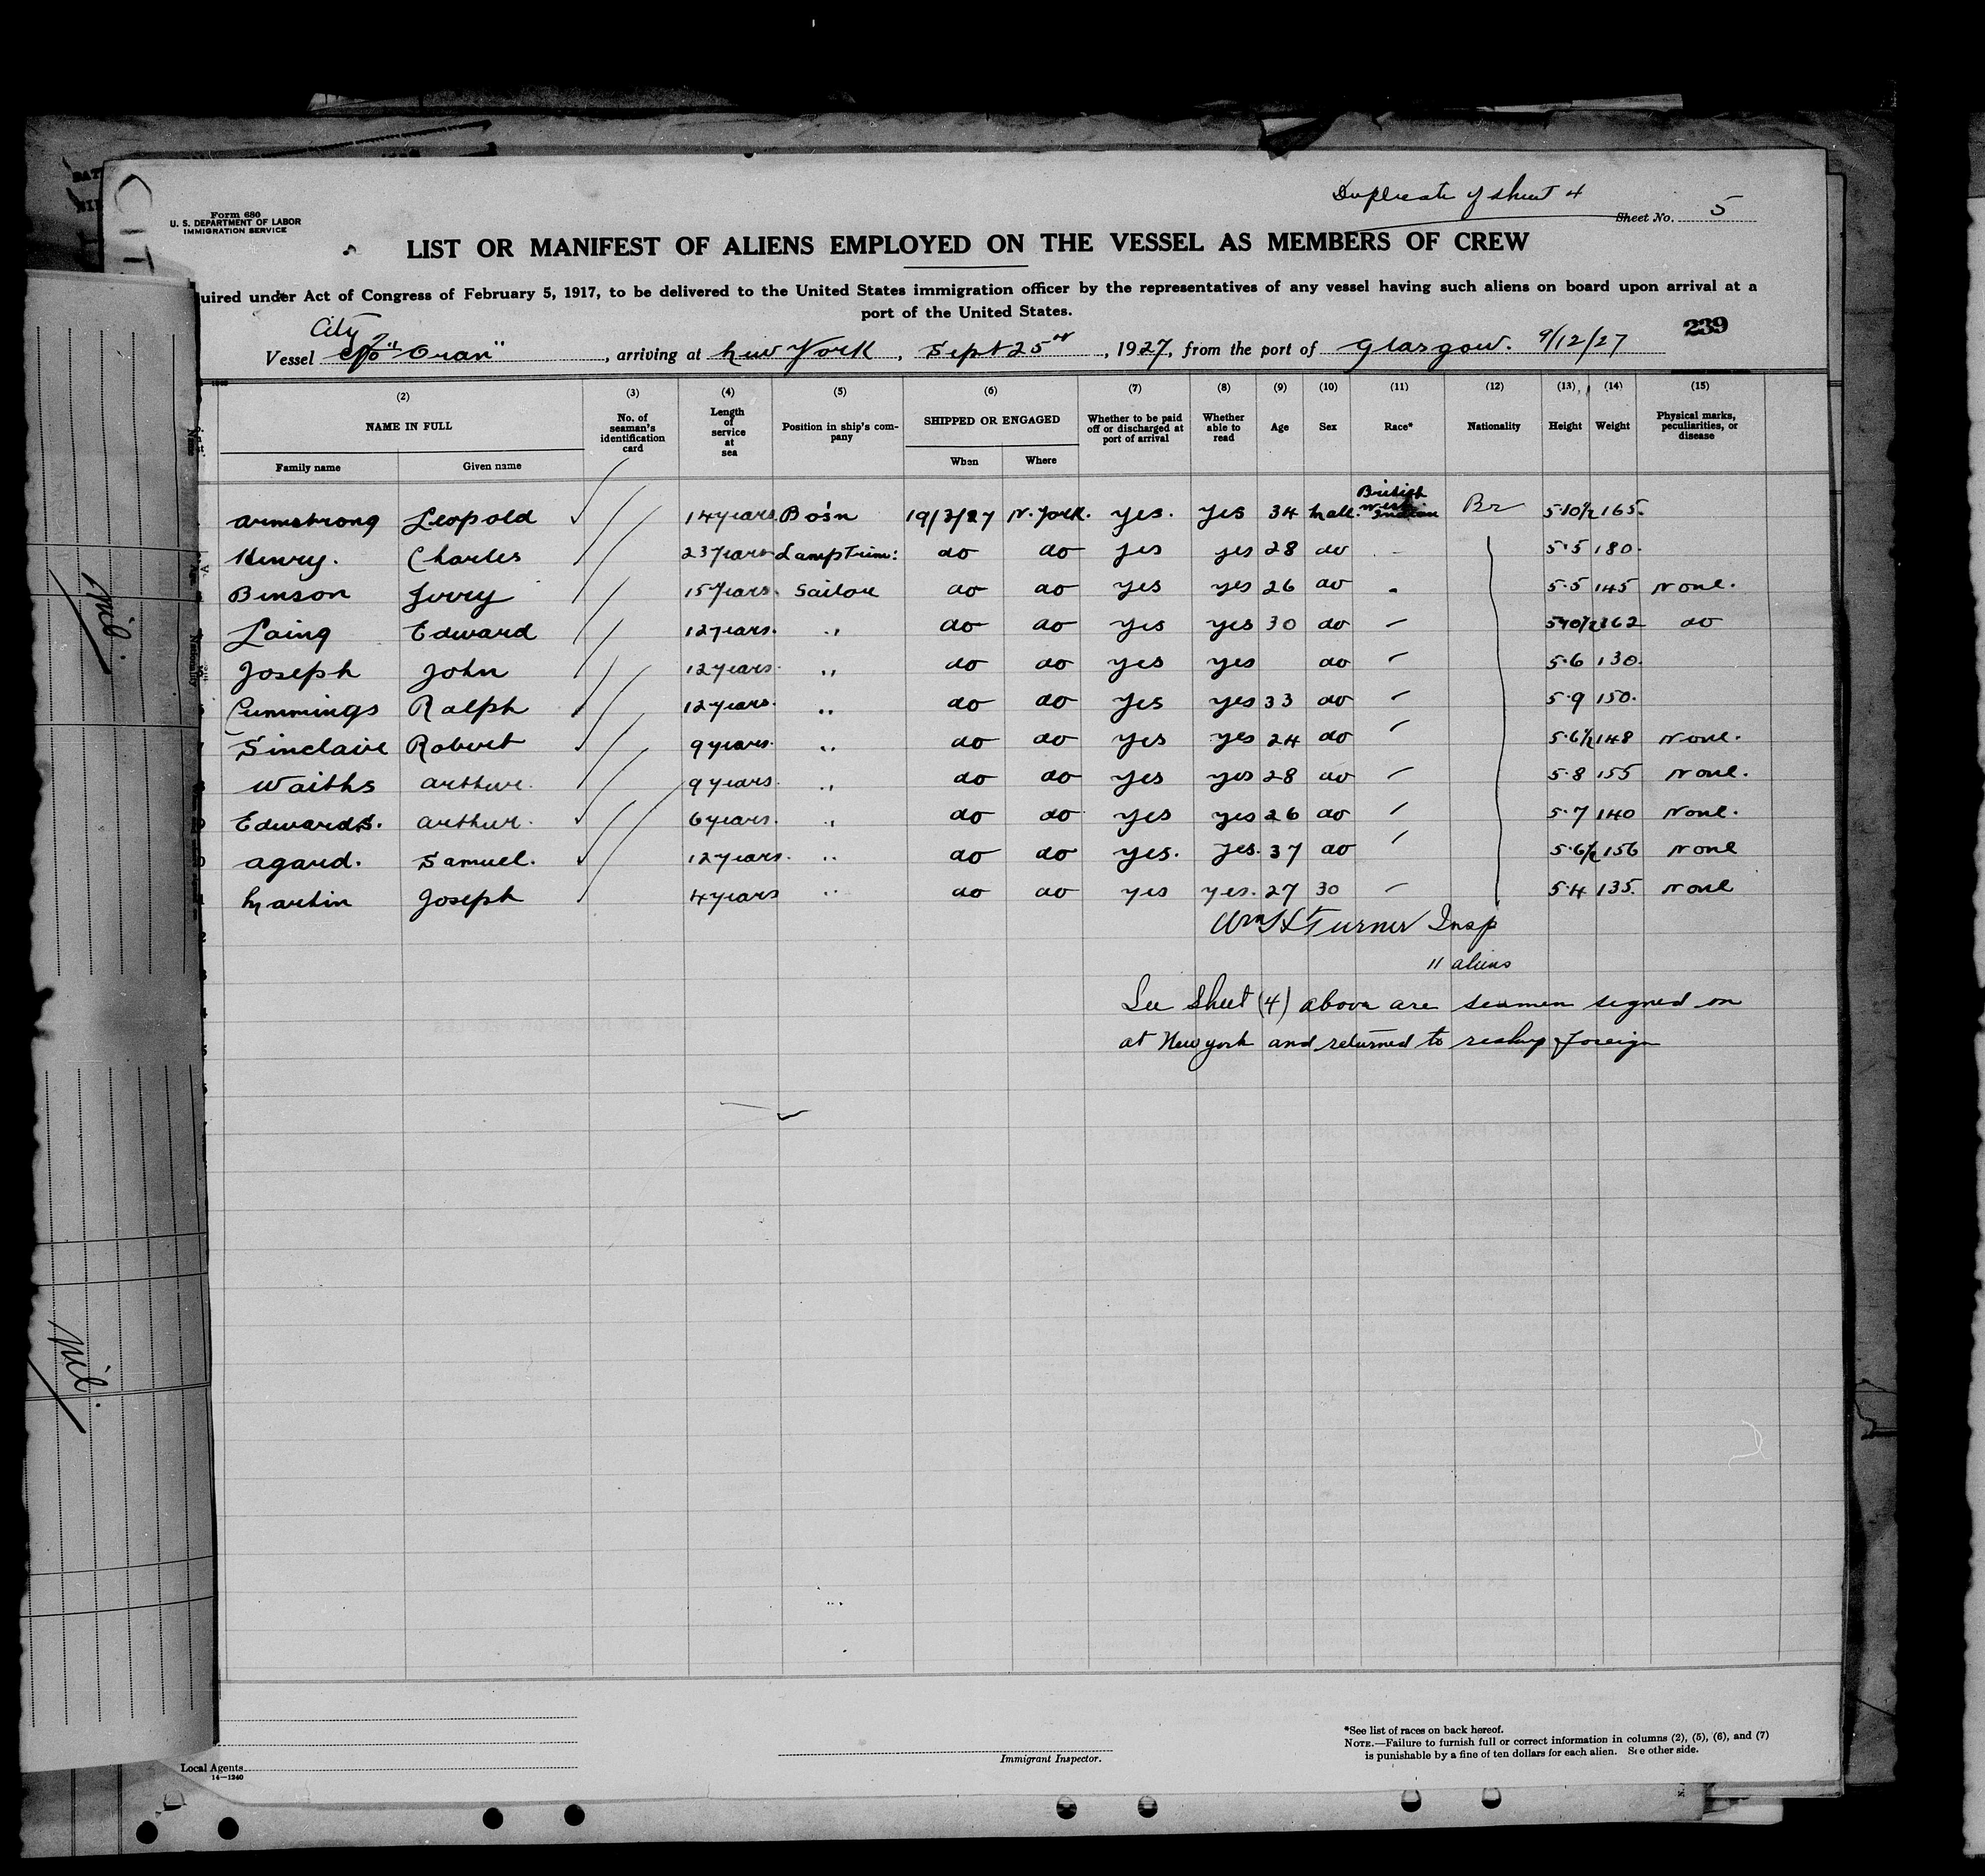 Duplicate of sheet 4
Form 680
U. S. DEPARTMENT OF LABOR
IMMIGRATION SERVICE
Sheet No. 5
LIST OR MANIFEST OF ALIENS EMPLOYED ON THE VESSEL AS MEMBERS OF CREW
uired under Act of Congress of February 5, 1917, to be delivered to the United States immigration officer by the representatives of any vessel having such aliens on board upon arrival at a
port of the United States.
239
Vessel City of "Oran", arriving at New York, Sept 25th, 1927, from the port of Glasgow. 9/12/27
(2) (3) (4) (5) (6) (7) (8) (9) (10) (11) (12) (13) (14) (15)
NAME IN FULL No. of seaman's identification card Length of service at sea Position in ship's company SHIPPED OR ENGAGED Whether to be paid off or discharged at port of arrival Whether able to read Age Sex Race* Nationality Height Weight Physical marks, peculiarities, or disease
Family name Given name When Where
Armstrong Leopold 14 years Bo'sn 19/3/27 N. York. yes. yes 34 Male. British West Indian Br 5·10½ 165.
Henry. Charles 23 years Lamp Trim: do do yes yes 28 do - 5·5 180.
Binson Jerry 15 years. Sailor do do yes yes 26 do - 5·5 145 None.
Laing Edward 12 years. " do do yes yes 30 do - 5·10½ 162 do
Joseph John 12 years. " do do yes yes do - 5·6 130.
Cummings Ralph 12 years. " do do yes yes 33 do - 5·9 150.
Sinclaire Robert 9 years. " do do yes yes 24 do - 5·6½ 148 None.
Waiths Arthur. 9 years. " do do yes yes 28 do - 5·8 155 None.
Edwards. Arthur. 6 years. " do do yes yes 26 do - 5·7 140 None.
Agard. Samuel. 12 years. " do do yes. yes. 37 do - 5·6½ 156 None
Martin Joseph 4 years " do do yes yes. 27 30 - 5·4 135. None
Wm H Turner Insp
11 aliens
See Sheet (4) above are seamen signed on
at New York and returned to reship foreign
Nil.
Nil.
*See list of races on back hereof.
NOTE.—Failure to furnish full or correct information in columns (2), (5), (6), and (7)
is punishable by a fine of ten dollars for each alien. See other side.
Immigrant Inspector.
Local Agents
14—1240